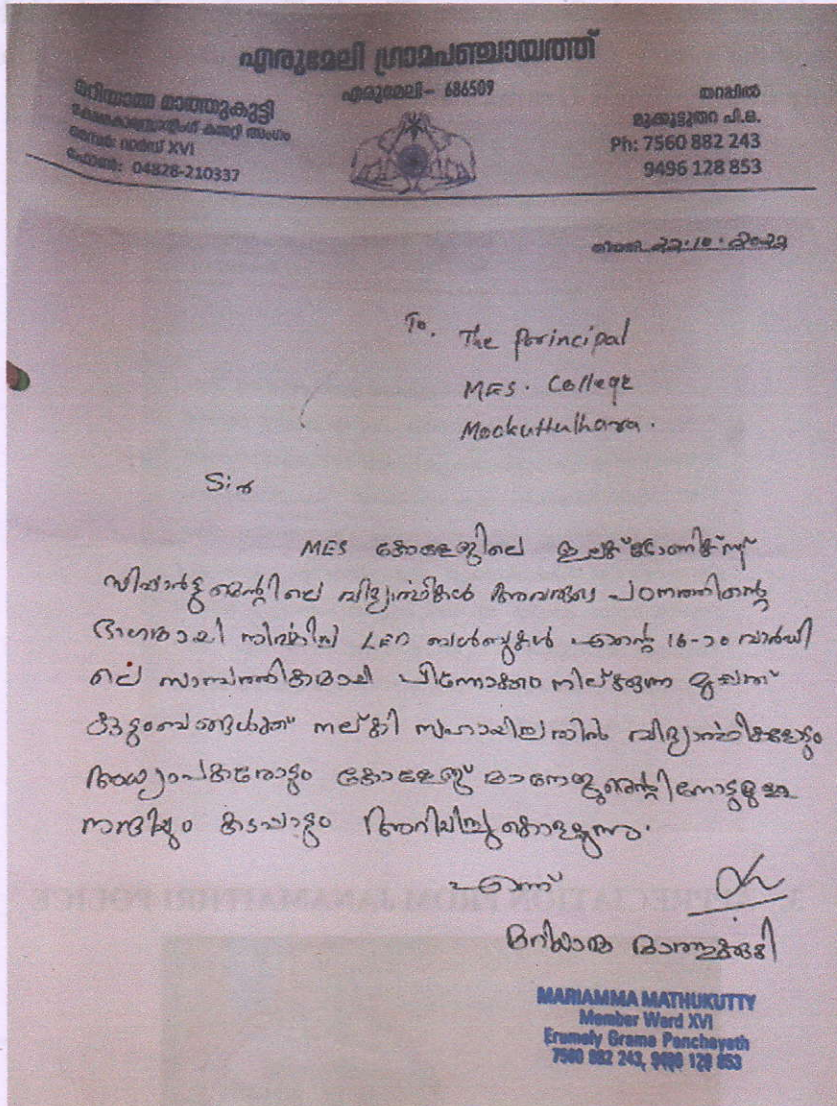 എരുമേലി ഗ്രാമപഞ്ചായത്ത്
എരുമേലി - 686509
മറിയാമ്മ മാത്തുക്കുട്ടി
ക്ഷേമകാര്യസ്റ്റാന്റിംഗ് കമ്മറ്റി അംഗം
മെമ്പർ: വാർഡ് XVI
ഫോൺ: 04828-210337
തറപ്പിൽ
മുക്കൂട്ടുതറ പി.ഒ.
Ph: 7560 882 243
9496 128 853
തീയതി 22.10.2022
To, The Principal
MES. College
Mookuttuthara.
Sir
MES കോളേജിലെ ഇലക്ട്രോണിക്സ്
ഡിപ്പാർട്ടുമെന്റിലെ വിദ്യാർത്ഥികൾ അവരുടെ പഠനത്തിന്റെ
ഭാഗമായി നിർമ്മിച്ച LED ബൾബുകൾ എന്റെ 16-ാം വാർഡി
ലെ സാമ്പത്തികമായി പിന്നോക്കം നില്ക്കുന്ന
കുടുംബങ്ങൾക്ക് നല്കി സഹായിച്ചതിൽ വിദ്യാർത്ഥികളോടും
അധ്യാപകരോടും കോളേജ് മാനേജുമെന്റിനോടുമുള്ള
നന്ദിയും കടപ്പാടും അറിയിച്ചുകൊള്ളുന്നു.
എന്ന്
മറിയാമ്മ മാത്തുക്കുട്ടി
MARIAMMA MATHUKUTTY
Member Ward XVI
Erumely Grama Panchayath
7560 882 243, 9496 128 853